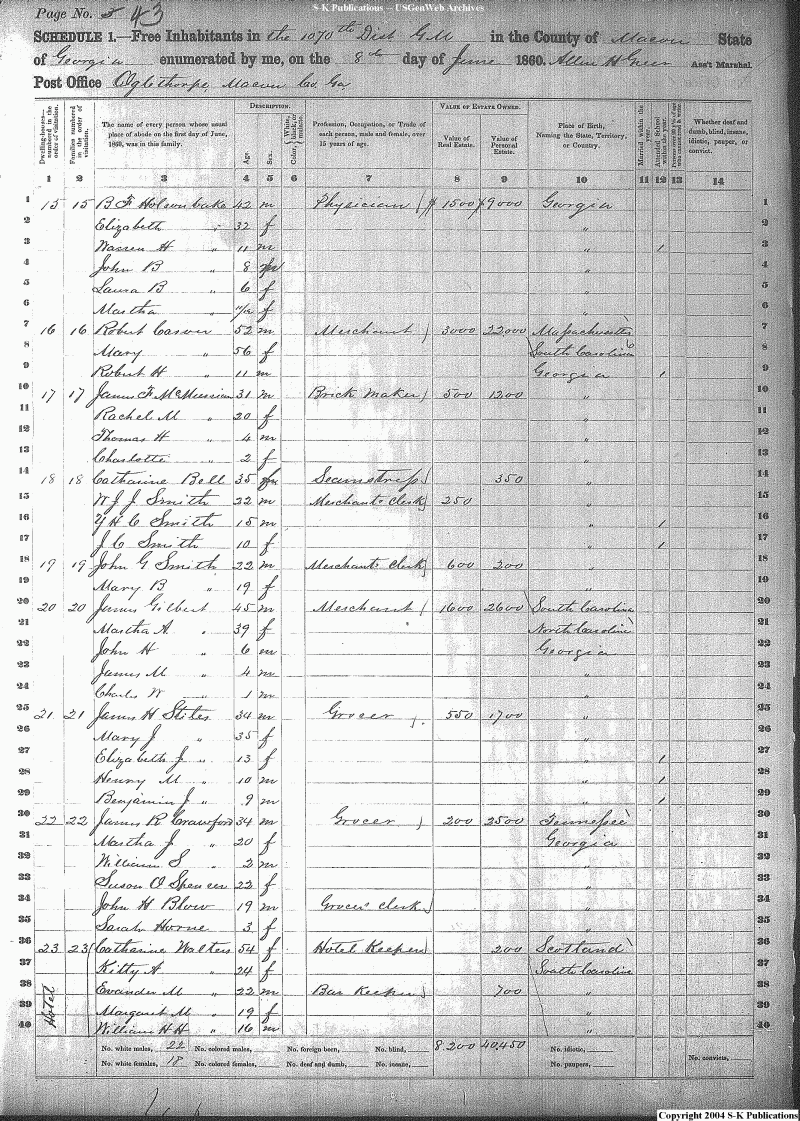 S-K Publications -- USGenWeb Archives
Page No. 5 43
SCHEDULE 1.—Free Inhabitants in the 1070th Dist G M in the County of Macon State
of Georgia enumerated by me, on the 8th day of June 1860. Allen H Greer Ass't Marshal.
Post Office Oglethorpe Macon Co. Ga
Dwelling-houses—numbered in the order of visitation.
Families numbered in the order of visitation.
The name of every person whose usual place of abode on the first day of June, 1860, was in this family.
DESCRIPTION.
Age
Sex
Color, White, black, or mulatto.
Profession, Occupation, or Trade of each person, male and female, over 15 years of age.
VALUE OF ESTATE OWNED.
Value of Real Estate.
Value of Personal Estate.
Place of Birth, Naming the State, Territory, or Country.
Married within the year.
Attended School within the year.
Whether deaf and dumb, blind, insane, idiotic, pauper, or convict.
1 2 3 4 5 6 7 8 9 10 11 12 13 14
1 15 15 B F 42 m Physician $ 1500 $ 9000 Georgia 1
2 Elizabeth " 32 f " 2
3 Warren H " 11 m " 1 3
4 John B " 8 m " 4
5 Laura B " 6 f " 5
6 Martha " f " 6
7 16 16 Robert Carver 52 m Merchant 3000 22000 Massachusetts 7
8 Mary " 56 f South Carolina 8
9 Robert H " 11 m Georgia 1 9
10 17 17 James F 31 m Brick Maker 500 1200 " 10
11 Rachel M " 20 f " 11
12 Thomas H " 4 m " 12
13 Charlotte " 2 f " 13
14 18 18 Catharine Bell 35 f Seamstress 350 " 14
15 W J J Smith 22 m Merchants Clerk 250 " 15
16 Y H C Smith 15 m " 1 16
17 J C Smith 10 f " 1 17
18 19 19 John G Smith 22 m Merchants Clerk 600 300 " 18
19 Mary B " 19 f " 19
20 20 20 James Gilbert 45 m Merchant 1600 2600 South Carolina 20
21 Martha A. " 39 f North Carolina 21
22 John H " 6 m Georgia 22
23 James M " 4 m " 23
24 Charles W " 1 m " 24
25 21 21 James H Stiles 34 m Grocer 550 1700 " 25
26 Mary J " 35 f " 26
27 Elizabeth J " 13 f " 1 27
28 Henry M " 10 m " 1 28
29 Benjamin J " 9 m " 1 29
30 22 22 James R Crawford 34 m Grocer 200 2500 Tennessee 30
31 Martha J " 20 f Georgia 31
32 William S " 2 m " 32
33 Susan O Spencer 22 f " 33
34 John H Blow 19 m Grocers Clerk " 34
35 Sarah Horne 3 f " 35
36 23 23 Catharine Walters 54 f Hotel Keeper 200 Scotland 36
37 Kitty A " 24 f South Carolina 37
38 Hotel Evander M " 22 m Bar Keeper 700 " 38
39 Margaret M " 19 f " 39
40 William H H " 16 m " 40
No. white males, 22 No. colored males, No. foreign born, No. blind, 8.200 40,450 No. idiotic,
No. white females, 18 No. colored females, No. deaf and dumb, No. insane, No. paupers, No. convicts,
Copyright 2004 S-K Publications